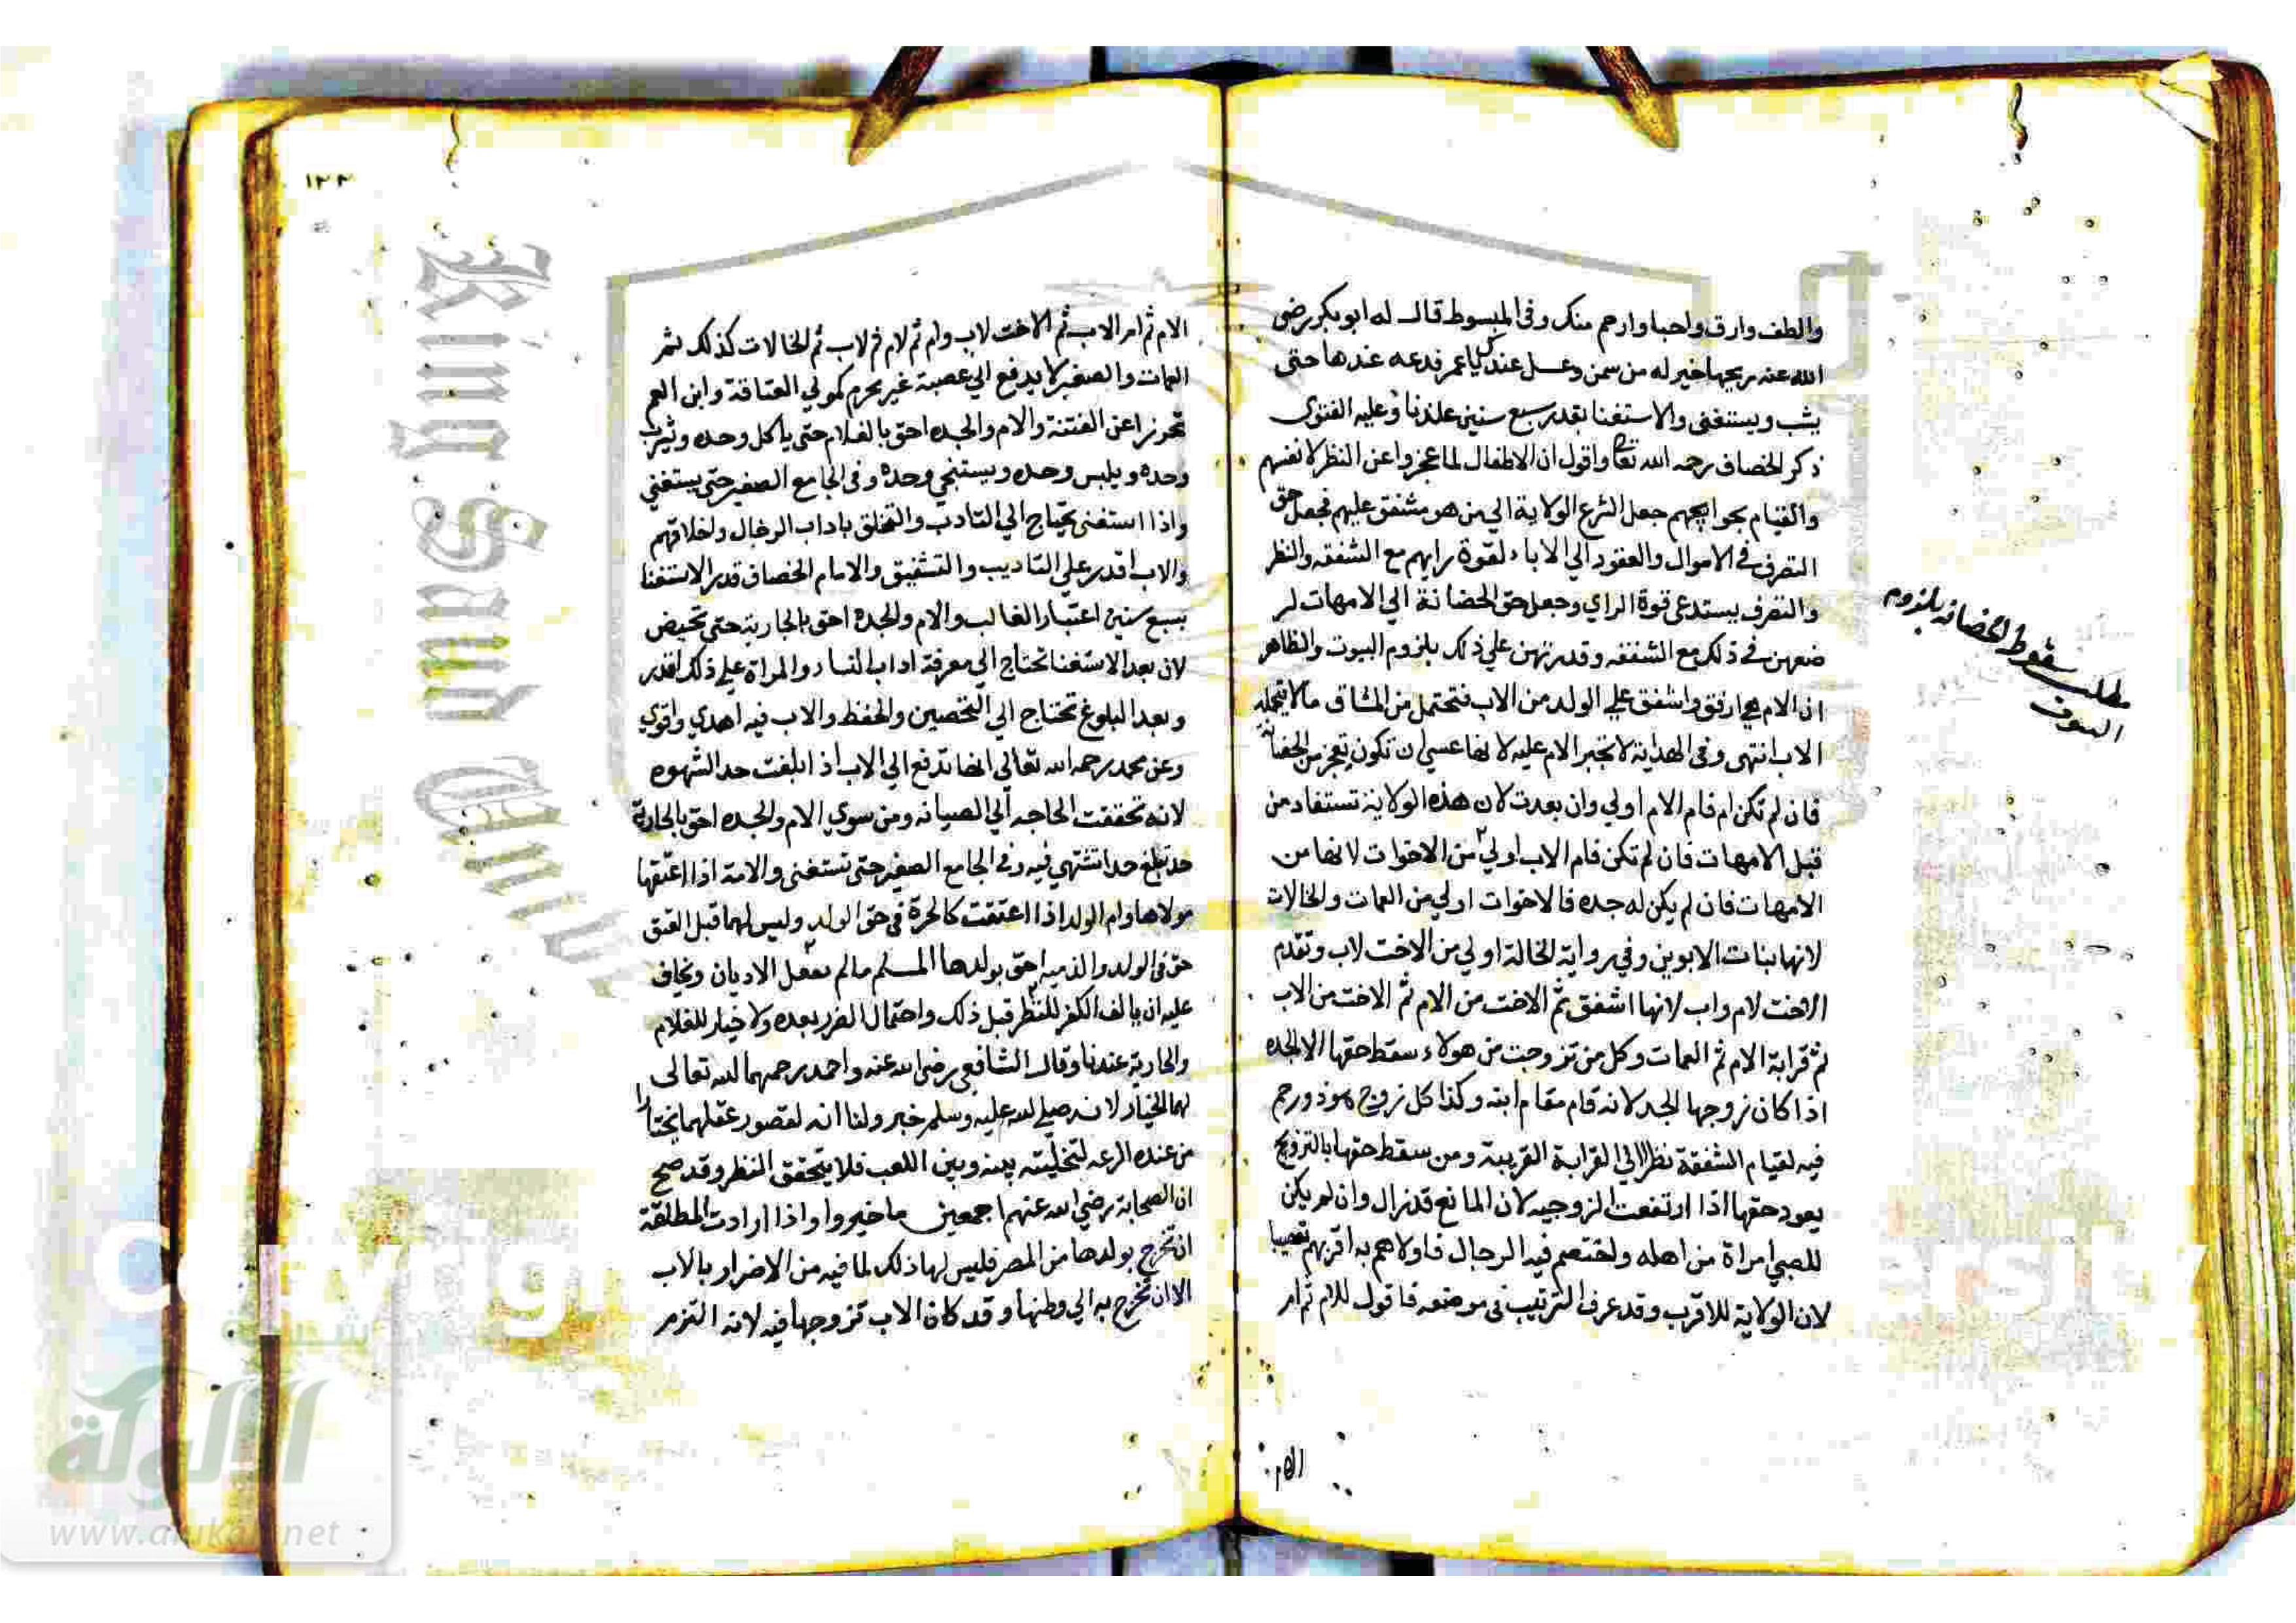 والطف وارق واحبا وارحم منك وفي المبسوط قال له ابو بكر رضي
الله عنه ريحها خير له من سمن وعسل عندك يا عمر فدعه عندها حتى
يشب ويستغنى والاستغنا بقدر سبع سنين عندنا وعليه الفتوى
ذكر الخصاف رحمه الله تعالى واقول ان الاطفال لما عجزوا عن النظر لانفسهم
والقيام بحوايجهم جعل الشرع الولاية الي من هو مشفق عليهم فجعل حق
التصرف في الاموال والعقود الي الاباء لقوة رايهم مع الشفقه والنظر
والتصرف يستدعى قوة الراي وجعل حق الحضانة الي الامهات لر
ضعهن في ذلك مع الشفقه وقدرتهن علي ذلك بلزوم البيوت والظاهر
ان الام هي ارفق واشفق علي الولد من الاب فتحتمل من المشاق مالا يتحمله
الاب انتهى وفي الهداية لا تجبر الام عليه لانها عسى ان تكون تعجز من الحضانة
فان لم تكن ام فام الام اولي وان بعدت لان هذه الولاية تستفاد من
قبل الامهات فان لم تكن فام الاب اولي من الاخوات لانها من
الامهات فان لم يكن له جده فالاخوات اولي من العمات والخالات
لانها بنات الابوين وفي رواية الخالة اولي من الاخت لاب وتقدم
الاخت لام واب لانها اشفق ثم الاخت من الام ثم الاخت من الاب
ثم قرابة الام ثم العمات وكل من تزوجت من هولاء سقط حقها الا الجده
اذا كان زوجها الجد لانه قام مقام ابنه وكذا كل زوج هو ذو رحم
فيه لقيام الشفقة نظرا الي القرابة القريبة ومن سقط حقها بالتزوج
يعود حقها اذا ارتفعت الزوجيه لان المانع قد زال وان لم يكن
للصبي امراة من اهله واختصم فيه الرجال فاولاهم به اقربهم تعصيبا
لان الولاية للاقرب وقد عرف الترتيب في موضعه فاقول للام ثم ام
الام
مطلب سقوط الحضانه بلزوم
١٢٢
الام ثم ام الاب ثم الاخت لاب وام ثم لام ثم لاب ثم الخالات كذلك ثم
العمات والصغير لا يدفع الي عصبة غير محرم كمولي العتاقة وابن العم
تحرزا عن الفتنة والام والجده احق بالغلام حتى ياكل وحده ويشرب
وحده ويلبس وحده ويستنجي وحده وفي الجامع الصغير حتى يستغني
واذا استغنى يحتاج الي التادب والتخلق باداب الرجال واخلاقهم
والاب اقدر علي التاديب والتثقيق والامام الخصاف قدر الاستغنا
بسبع سنين اعتبارا للغالب والام والجدة احق بالجارية حتى تحيض
لان بعد الاستغنا تحتاج الي معرفة اداب النساء والمراة علي ذلك اقدر
وبعد البلوغ تحتاج الي التحصين والحفظ والاب فيه اهدي واقوي
وعن محمد رحمه الله تعالي انها تدفع الي الاب اذا بلغت حد الشهوه
لانه تحققت الحاجه الي الصيانه ومن سوي الام والجده احق بالجارية
حتى تبلغ حدا تشتهي فيه وفي الجامع الصغير حتى تستغنى والامة اذا اعتقها
مولاها وام الولد اذا اعتقت كالحرة في حق الولد وليس لهما قبل العتق
حق في الولد والذميه احق بولدها المسلم مالم يعقل الاديان ويخاف
عليه ان يالف الكفر للنظر قبل ذلك واحتمال الضرر بعده ولا خيار للغلام
والجارية عندنا وقال الشافعي رضي الله عنه واحمد رحمهما الله تعالى
لهما الخيار لانه صلي الله عليه وسلم خير ولنا انه لقصور عقلهما يختارا
من عنده الدعه لتخليته بينه وبين اللعب فلا يتحقق النظر وقد صح
ان الصحابة رضي الله عنهم اجمعين ما خيروا واذا ارادت المطلقة
ان تخرج بولدها من المصر فليس لها ذلك لما فيه من الاضرار بالاب
الا ان تخرج به الي وطنها وقد كان الاب تزوجها فيه لانه التزم
King Saud
شبكة
الألوكة
www.alukah.net